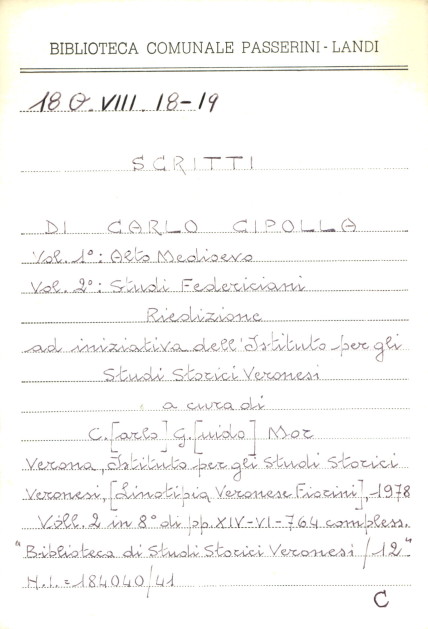 BIBLIOTECA COMUNALE PASSERINI-LANDI
18 O. VIII. 18-19
SCRITTI
DI CARLO CIPOLLA
Vol. 1°: Alto Medioevo
Vol. 2°: Studi Federiciani
Riedizione
ad iniziativa dell'Istituto per gli
Studi Storici Veronesi
a cura di
C.[arlo] G.[uido] Mor
Verona, Istituto per gli Studi Storici
Veronesi, [Linotipia Veronese Fiorini], 1978
Vóll. 2 in 8° di pp. XIV-VI-764 compless.
"Biblioteca di Studi Storici Veronesi / 12"
N.i. = 184040/41
C